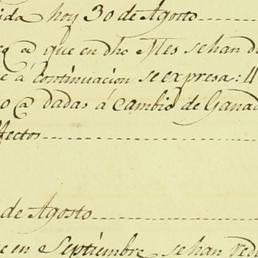 ida hoy 30 de Agosto
q.e en dho Mes se han d
e á continuacion se expresa: 11
o @ dadas á cambio de Ganad
fectos
de Agosto
e en Septiembre se han red